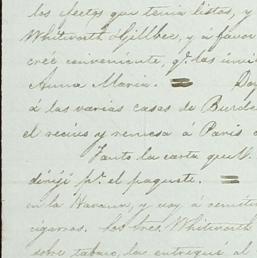 los efectos que tenia listos, y
Whitworth & Gillbee, y á favor
creé conveniente, qe. las
Anna Maria. = Doy
á las varias casas de Burde
el recivo y remesa á Paris
Tanto la carta que V.
dirijí pr. el paquete. =
en la Havana, y voy á remitir
cigarros. Los Sres. Whitworth
sobre tabaco, la entregué al